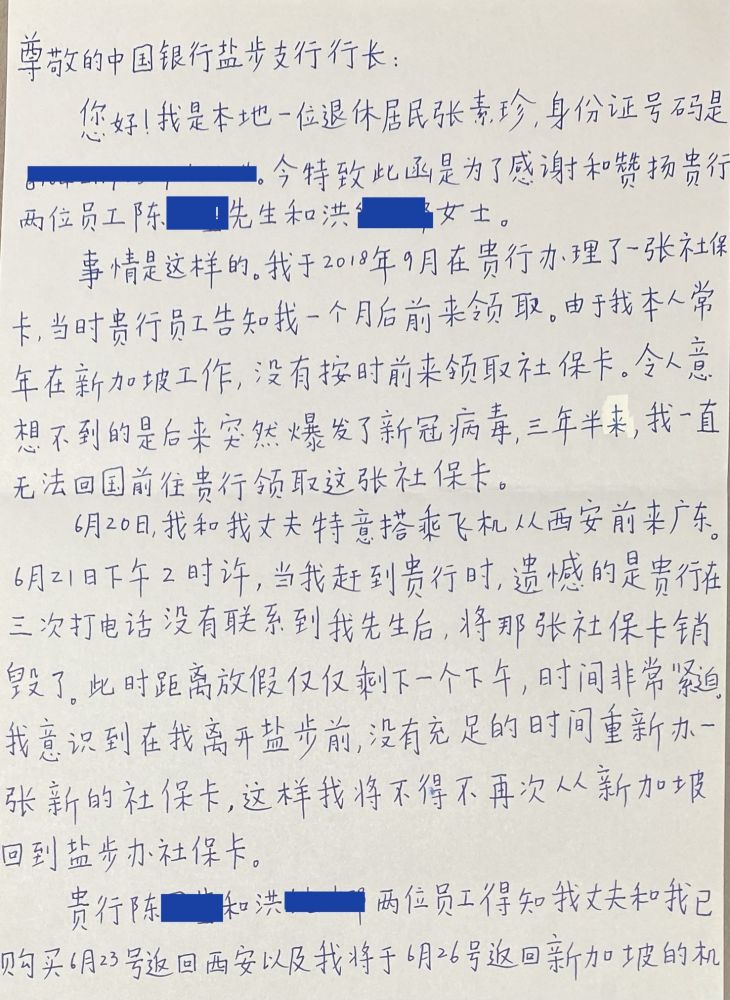 尊敬的中国银行盐步支行行长：
您好！我是本地一位退休居民张素珍，身份证号码是
。今特致此函是为了感谢和赞扬贵行
两位员工陈 ! 先生和洪 女士。
事情是这样的。我于2018年9月在贵行办理了一张社保
卡，当时贵行员工告知我一个月后前来领取。由于我本人常
年在新加坡工作，没有按时前来领取社保卡。令人意
想不到的是后来突然爆发了新冠病毒，三年半来，我一直
无法回国前往贵行领取这张社保卡。
6月20日，我和我丈夫特意搭乘飞机从西安前来广东。
6月21日下午2时许，当我赶到贵行时，遗憾的是贵行在
三次打电话没有联系到我先生后，将那张社保卡销
毁了。此时距离放假仅仅剩下一个下午，时间非常紧迫。
我意识到在我离开盐步前，没有充足的时间重新办一
张新的社保卡，这样我将不得不再次从新加坡
回到盐步办社保卡。
贵行陈 和洪 两位员工得知我丈夫和我已
购买6月23号返回西安以及我将于6月26号返回新加坡的机